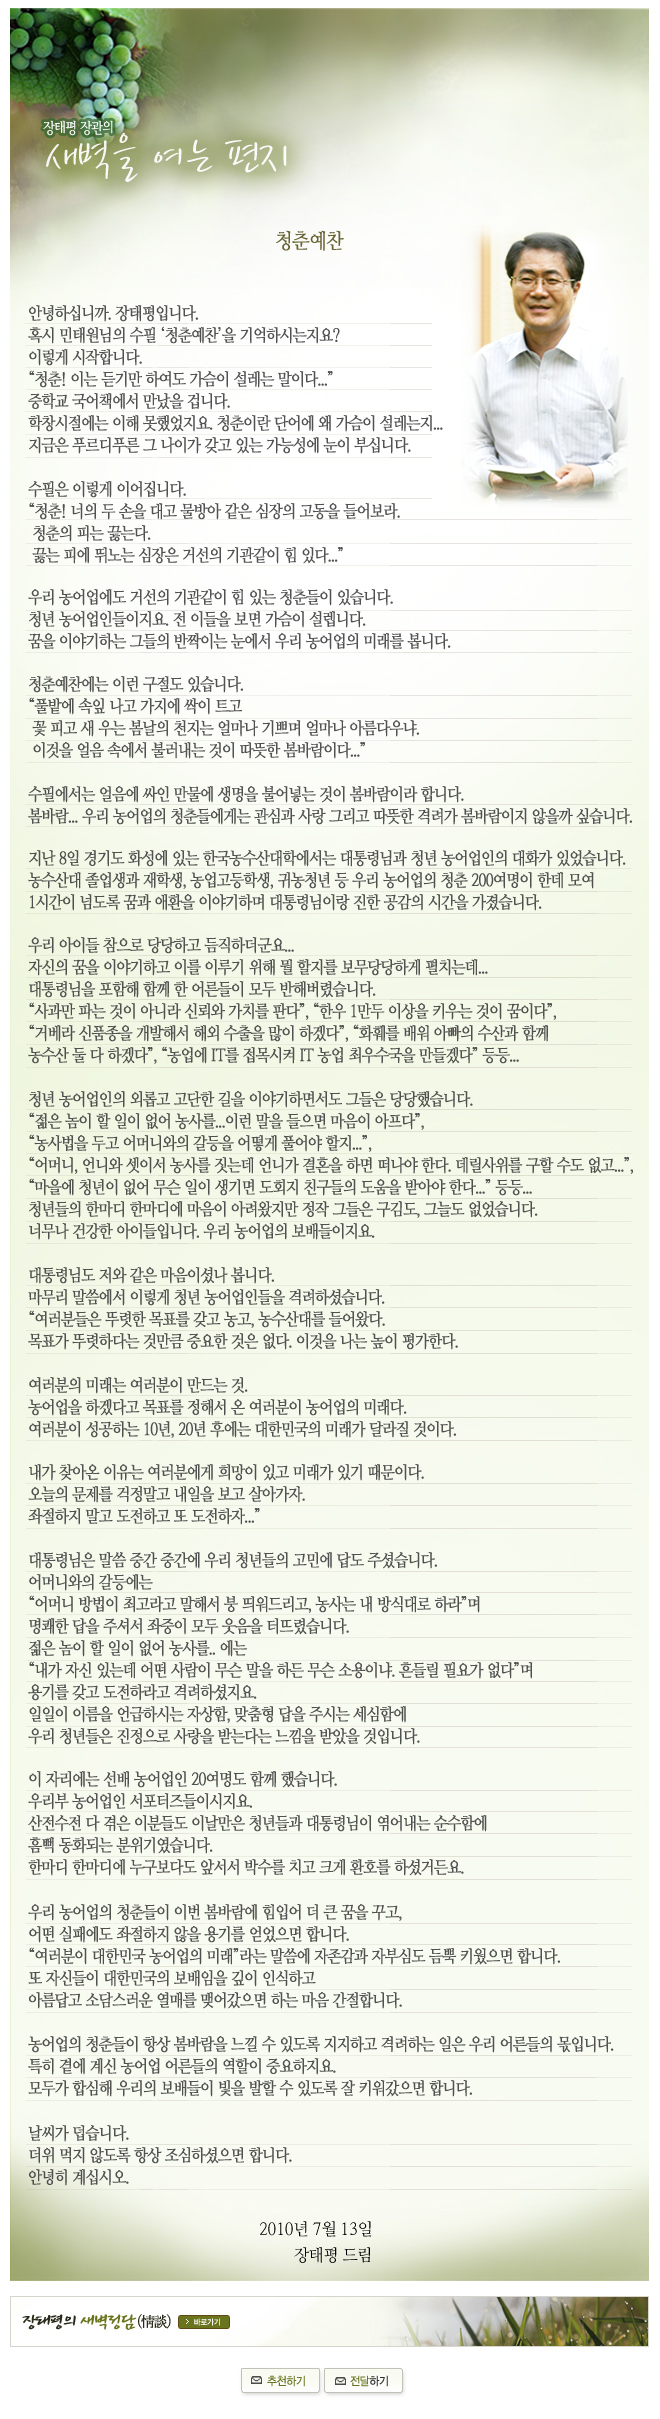 장태평 장관의
새벽을 여는 편지
청춘예찬
안녕하십니까. 장태평입니다.
혹시 민태원님의 수필 ‘청춘예찬’을 기억하시는지요?
이렇게 시작합니다.
“청춘! 이는 듣기만 하여도 가슴이 설레는 말이다...”
중학교 국어책에서 만났을 겁니다.
학창시절에는 이해 못했었지요. 청춘이란 단어에 왜 가슴이 설레는지...
지금은 푸르디푸른 그 나이가 갖고 있는 가능성에 눈이 부십니다.
수필은 이렇게 이어집니다.
“청춘! 너의 두 손을 대고 물방아 같은 심장의 고동을 들어보라.
청춘의 피는 끓는다.
끓는 피에 뛰노는 심장은 거선의 기관같이 힘 있다...”
우리 농어업에도 거선의 기관같이 힘 있는 청춘들이 있습니다.
청년 농어업인들이지요. 전 이들을 보면 가슴이 설렙니다.
꿈을 이야기하는 그들의 반짝이는 눈에서 우리 농어업의 미래를 봅니다.
청춘예찬에는 이런 구절도 있습니다.
“풀밭에 속잎 나고 가지에 싹이 트고
꽃 피고 새 우는 봄날의 천지는 얼마나 기쁘며 얼마나 아름다우냐.
이것을 얼음 속에서 불러내는 것이 따뜻한 봄바람이다...”
수필에서는 얼음에 싸인 만물에 생명을 불어넣는 것이 봄바람이라 합니다.
봄바람... 우리 농어업의 청춘들에게는 관심과 사랑 그리고 따뜻한 격려가 봄바람이지 않을까 싶습니다.
지난 8일 경기도 화성에 있는 한국농수산대학에서는 대통령님과 청년 농어업인의 대화가 있었습니다.
농수산대 졸업생과 재학생, 농업고등학생, 귀농청년 등 우리 농어업의 청춘 200여명이 한데 모여
1시간이 넘도록 꿈과 애환을 이야기하며 대통령님이랑 진한 공감의 시간을 가졌습니다.
우리 아이들 참으로 당당하고 듬직하더군요...
자신의 꿈을 이야기하고 이를 이루기 위해 뭘 할지를 보무당당하게 펼치는데...
대통령님을 포함해 함께 한 어른들이 모두 반해버렸습니다.
“사과만 파는 것이 아니라 신뢰와 가치를 판다”, “한우 1만두 이상을 키우는 것이 꿈이다”,
“거베라 신품종을 개발해서 해외 수출을 많이 하겠다”, “화훼를 배워 아빠의 수산과 함께
농수산 둘 다 하겠다”, “농업에 IT를 접목시켜 IT 농업 최우수국을 만들겠다” 등등...
청년 농어업인의 외롭고 고단한 길을 이야기하면서도 그들은 당당했습니다.
“젊은 놈이 할 일이 없어 농사를...이런 말을 들으면 마음이 아프다”,
“농사법을 두고 어머니와의 갈등을 어떻게 풀어야 할지...”,
“어머니, 언니와 셋이서 농사를 짓는데 언니가 결혼을 하면 떠나야 한다. 데릴사위를 구할 수도 없고...”,
“마을에 청년이 없어 무슨 일이 생기면 도회지 친구들의 도움을 받아야 한다...” 등등...
청년들의 한마디 한마디에 마음이 아려왔지만 정작 그들은 구김도, 그늘도 없었습니다.
너무나 건강한 아이들입니다. 우리 농어업의 보배들이지요.
대통령님도 저와 같은 마음이셨나 봅니다.
마무리 말씀에서 이렇게 청년 농어업인들을 격려하셨습니다.
“여러분들은 뚜렷한 목표를 갖고 농고, 농수산대를 들어왔다.
목표가 뚜렷하다는 것만큼 중요한 것은 없다. 이것을 나는 높이 평가한다.
여러분의 미래는 여러분이 만드는 것.
농어업을 하겠다고 목표를 정해서 온 여러분이 농어업의 미래다.
여러분이 성공하는 10년, 20년 후에는 대한민국의 미래가 달라질 것이다.
내가 찾아온 이유는 여러분에게 희망이 있고 미래가 있기 때문이다.
오늘의 문제를 걱정말고 내일을 보고 살아가자.
좌절하지 말고 도전하고 또 도전하자...”
대통령님은 말씀 중간 중간에 우리 청년들의 고민에 답도 주셨습니다.
어머니와의 갈등에는
“어머니 방법이 최고라고 말해서 붕 띄워드리고, 농사는 내 방식대로 하라”며
명쾌한 답을 주셔서 좌중이 모두 웃음을 터뜨렸습니다.
젊은 놈이 할 일이 없어 농사를.. 에는
“내가 자신 있는데 어떤 사람이 무슨 말을 하든 무슨 소용이냐. 흔들릴 필요가 없다”며
용기를 갖고 도전하라고 격려하셨지요.
일일이 이름을 언급하시는 자상함, 맞춤형 답을 주시는 세심함에
우리 청년들은 진정으로 사랑을 받는다는 느낌을 받았을 것입니다.
이 자리에는 선배 농어업인 20여명도 함께 했습니다.
우리부 농어업인 서포터즈들이시지요.
산전수전 다 겪은 이분들도 이날만은 청년들과 대통령님이 엮어내는 순수함에
흠뻑 동화되는 분위기였습니다.
한마디 한마디에 누구보다도 앞서서 박수를 치고 크게 환호를 하셨거든요.
우리 농어업의 청춘들이 이번 봄바람에 힘입어 더 큰 꿈을 꾸고,
어떤 실패에도 좌절하지 않을 용기를 얻었으면 합니다.
“여러분이 대한민국 농어업의 미래”라는 말씀에 자존감과 자부심도 듬뿍 키웠으면 합니다.
또 자신들이 대한민국의 보배임을 깊이 인식하고
아름답고 소담스러운 열매를 맺어갔으면 하는 마음 간절합니다.
농어업의 청춘들이 항상 봄바람을 느낄 수 있도록 지지하고 격려하는 일은 우리 어른들의 몫입니다.
특히 곁에 계신 농어업 어른들의 역할이 중요하지요.
모두가 합심해 우리의 보배들이 빛을 발할 수 있도록 잘 키워갔으면 합니다.
날씨가 덥습니다.
더위 먹지 않도록 항상 조심하셨으면 합니다.
안녕히 계십시오.
2010년 7월 13일
장태평 드림
장태평의 새벽정담(情談) 바로가기
추천하기 전달하기